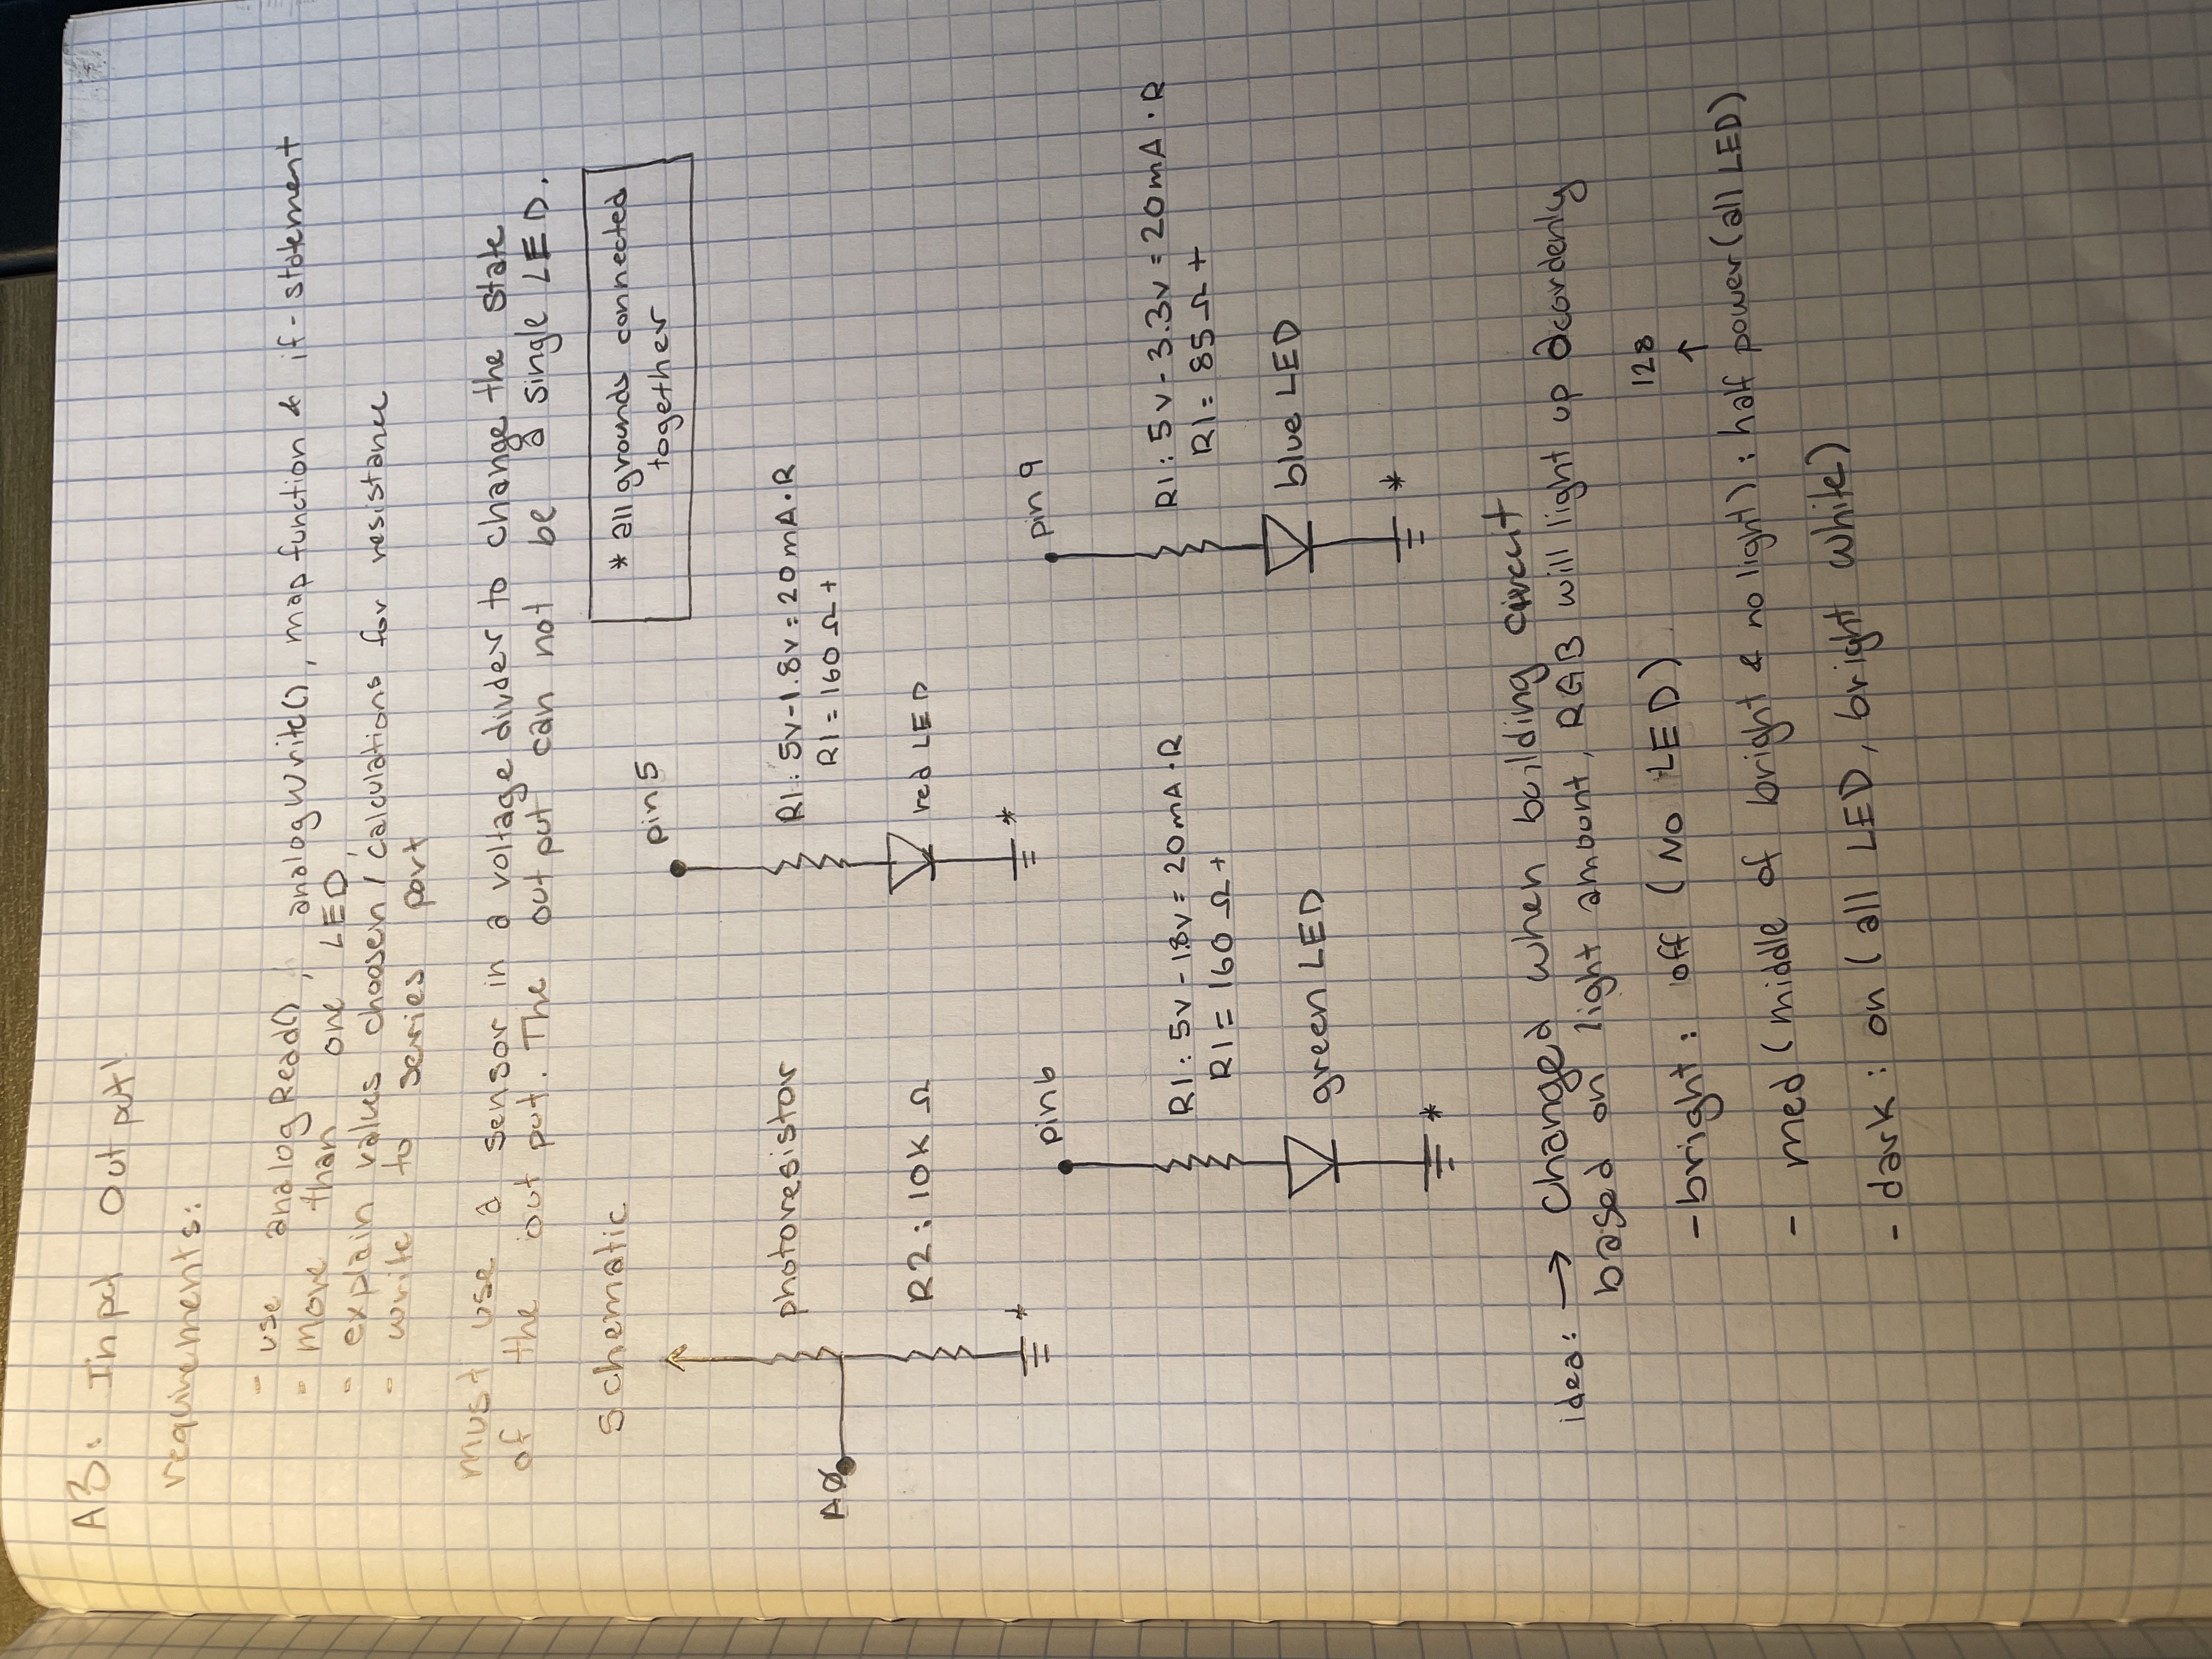 A3: Input Output!
requirements:
- use analogRead(), analogWrite(), map function & if-statement
- more than one LED,
- explain values choosen / calculations for resistance
- write to series port
must use a sensor in a voltage divder to change the state
of the out put. The output can not be a single LED.
schematic
* all grounds connected
together
pin 5
photoresistor
R1: 5v-1.8v = 20mA·R
R1 = 160 Ω +
AØ
R2: 10K Ω
red LED
*
*
pin 6
pin 9
R1: 5v - 1.8v = 20mA·R
R1 = 160 Ω +
R1: 5v - 3.3v = 20mA·R
R1 = 85 Ω +
green LED
blue LED
*
*
idea: → changed when building circuit
based on light amount, RGB will light up acordenly
- bright: off (No LED)
128
↑
- med (middle of bright & no light): half power (all LED)
- dark: on (all LED, bright white)